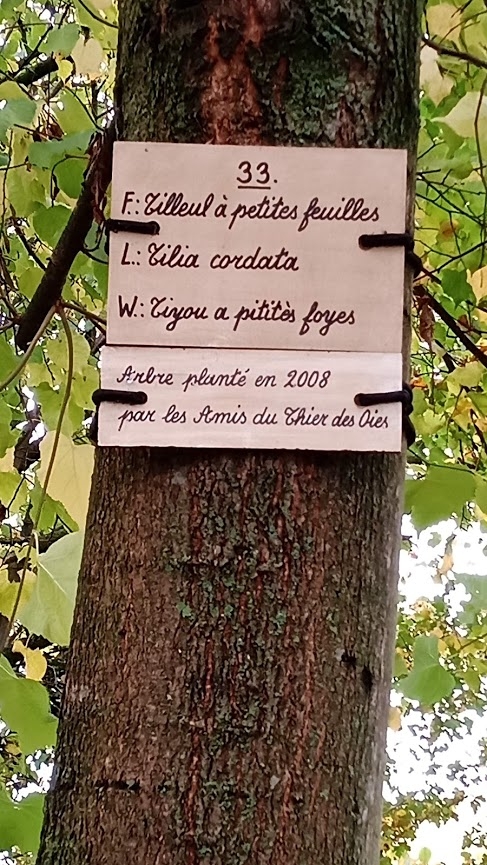 33.
F.: Tilleul à petites feuilles
L.: Tilia cordata
W.: Tiyou a pititès foyes
Arbre planté en 2008
par les Amis du Thier des Oies